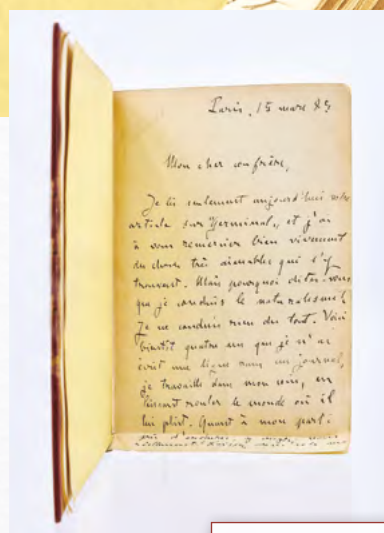 Paris, 15 mars 85
Mon cher confrère,
Je lis seulement aujourd'hui votre
article sur Germinal, et j'ai
à vous remercier bien vivement
des choses très aimables qui s'y
trouvent. Mais pourquoi dites-vous
que je conduis le naturalisme?
Je ne conduis rien du tout. Voici
bientôt quatre ans que je n'ai
écrit une ligne dans un journal,
je travaille dans mon coin, en
laissant rouler le monde où il
lui plaît. Quant à mon parti
pris